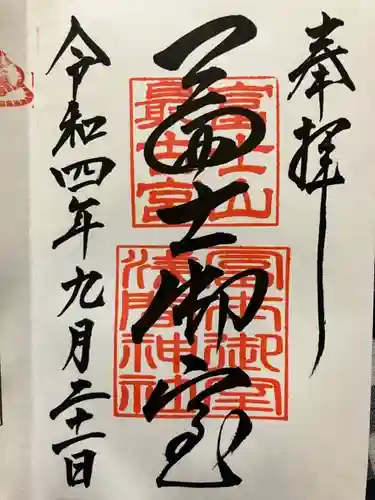 奉拝
冨士御室
富士山
最古宮
冨士御室
浅間神社
令和四年九月二十一日